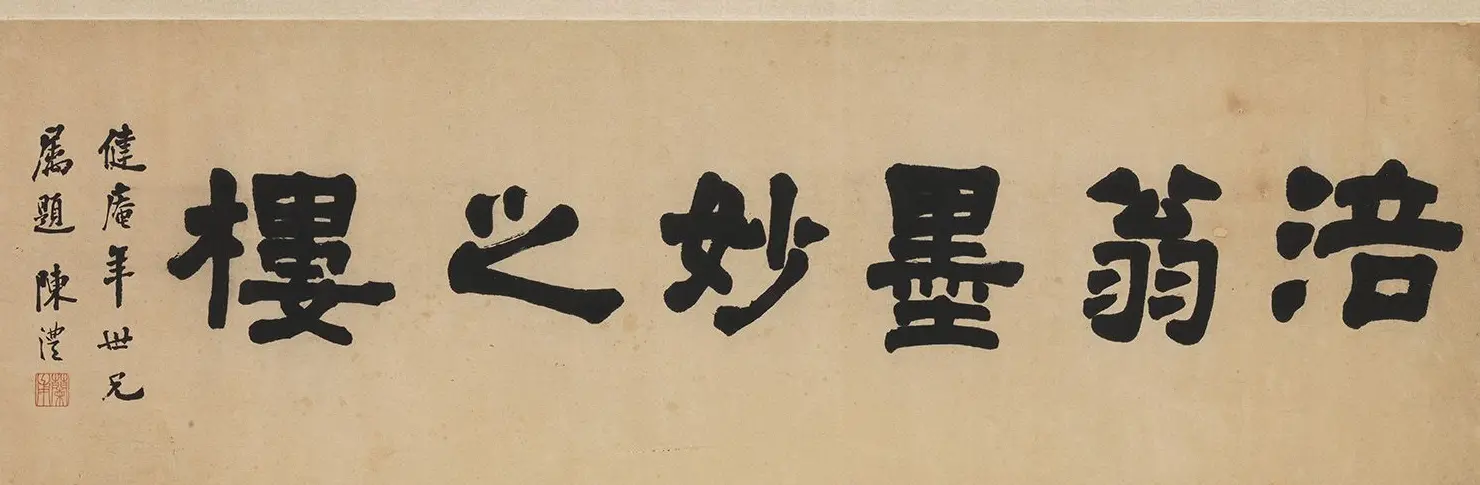 涪翁墨妙之樓
健庵年世兄
屬題 陳澧